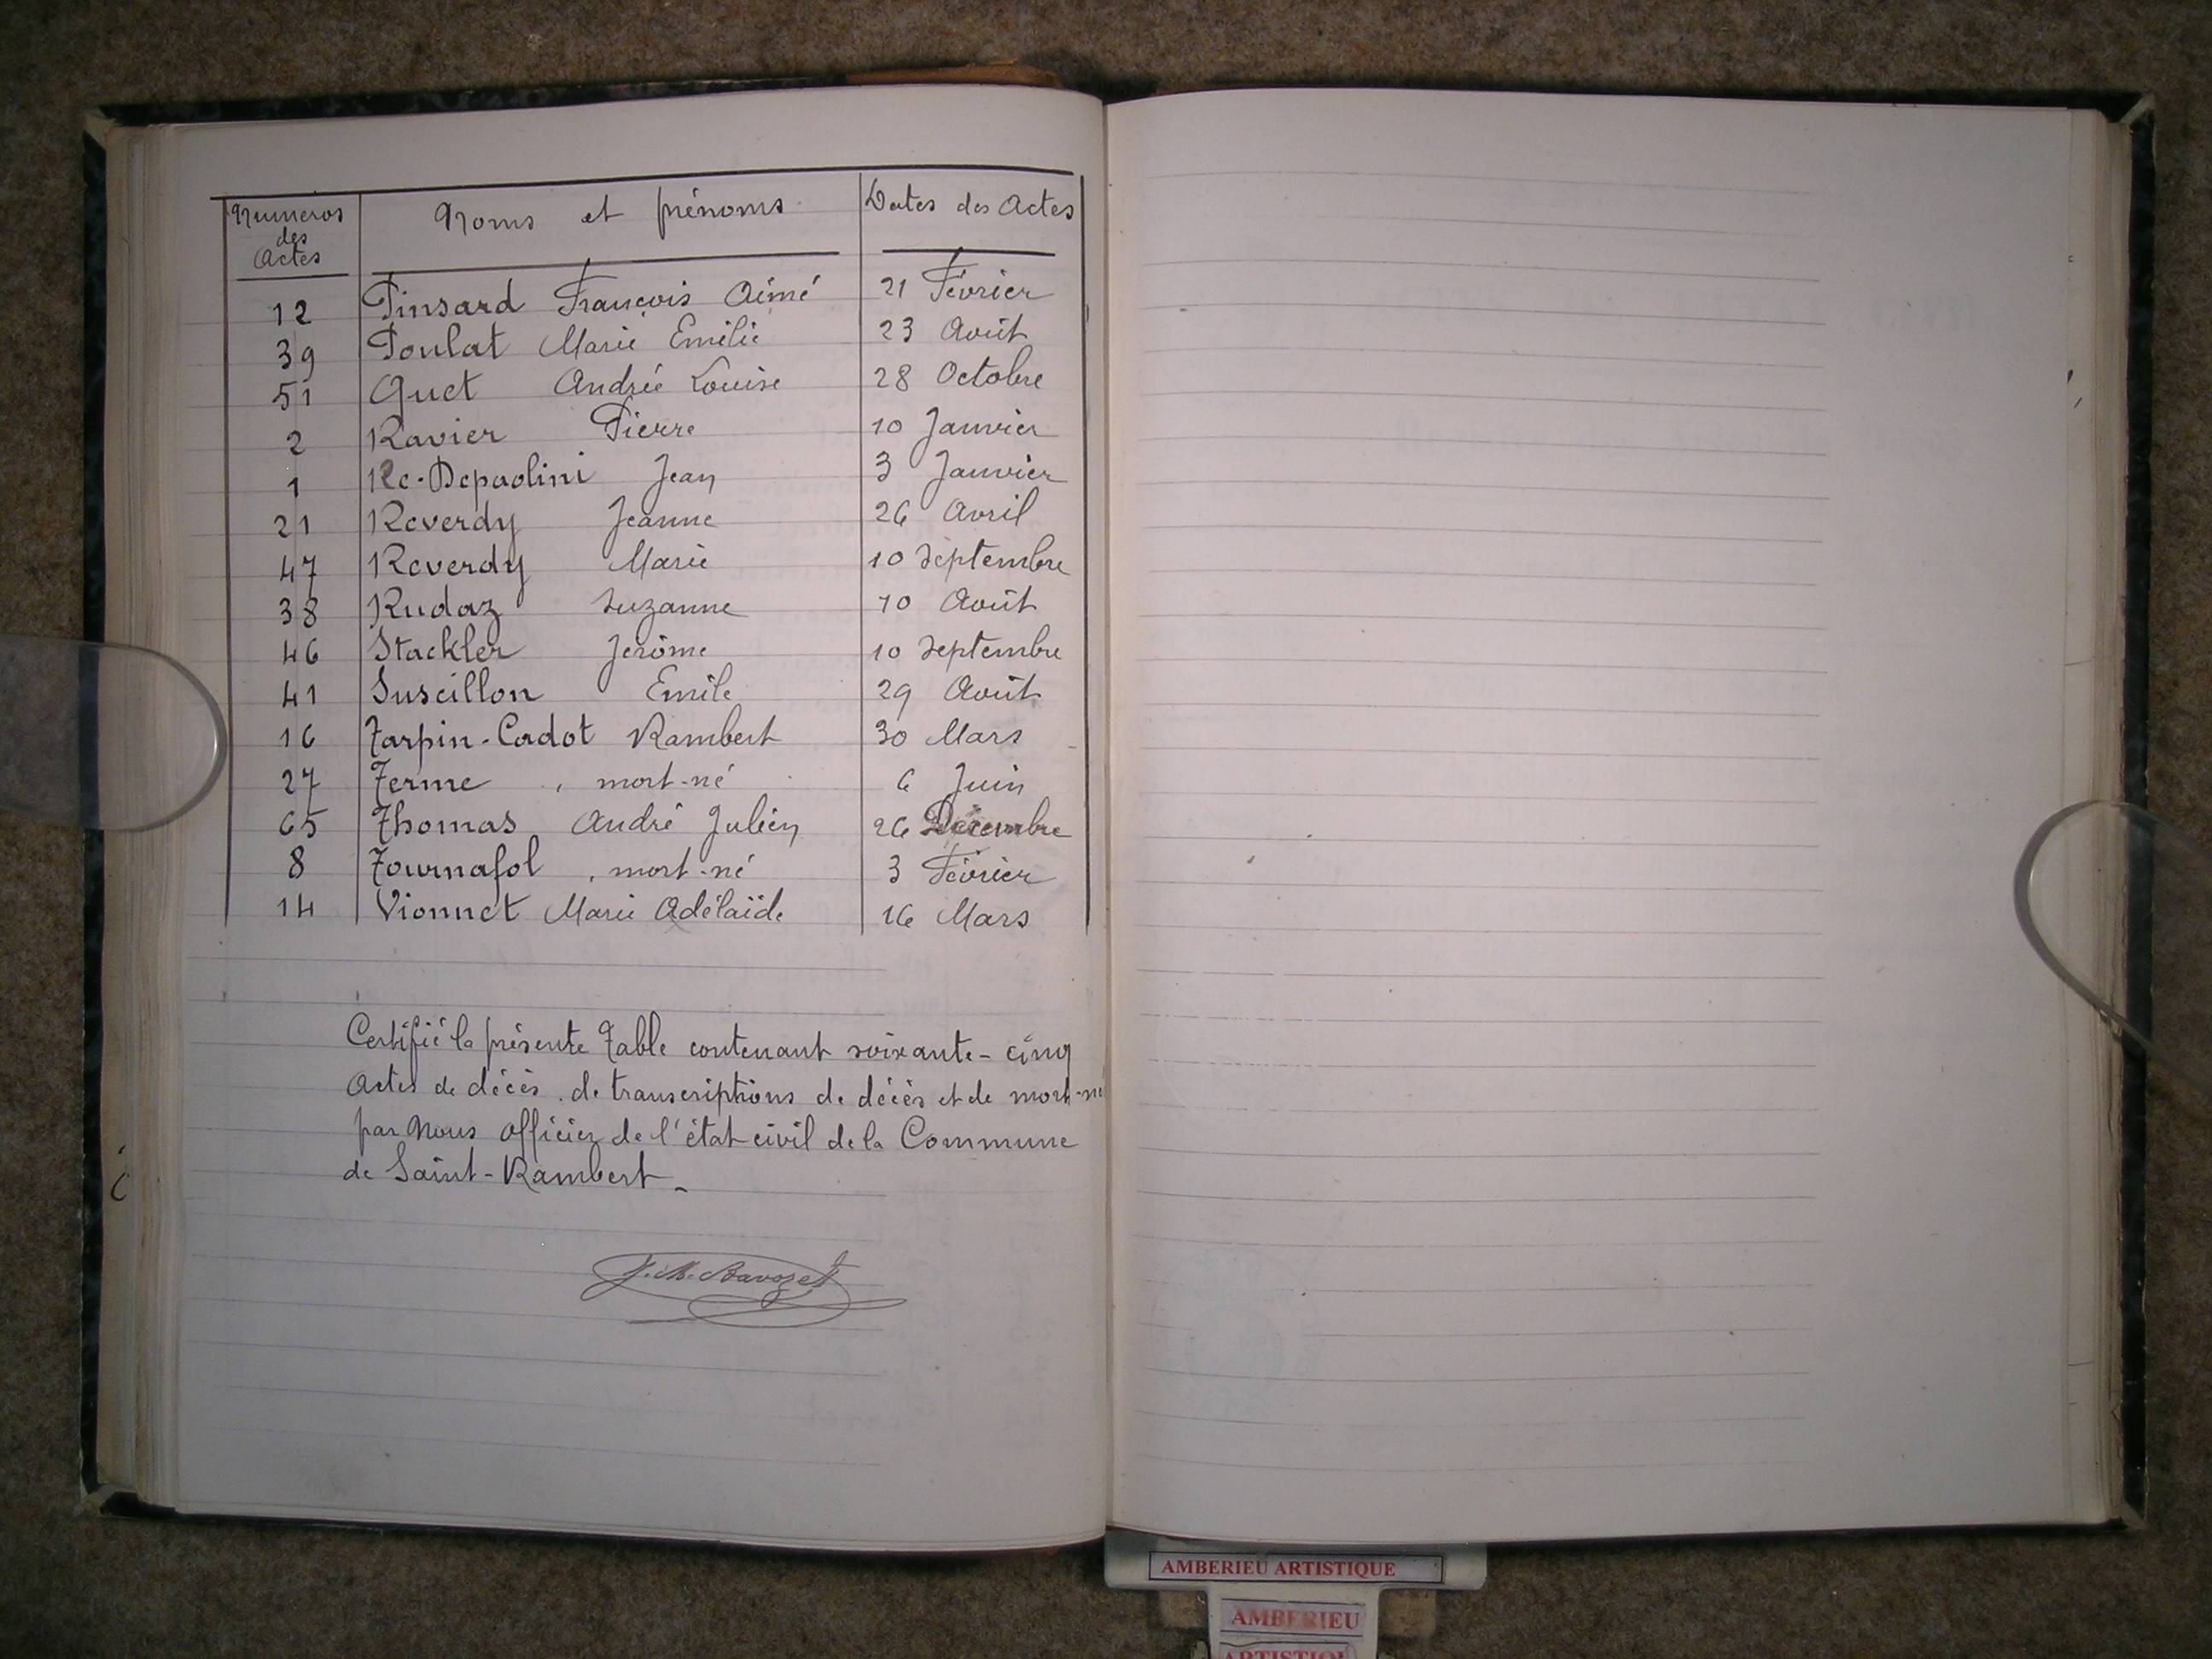 Numeros des Actes Noms et prénoms Dates des Actes
12 Pinsard François Aimé 21 Février
39 Poulat Marie Emilie 23 Août
51 Quet Andrée Louise 28 Octobre
2 Ravier Pierre 10 Janvier
1 Re-Depaolini Jean 3 Janvier
21 Reverdy Jeanne 26 Avril
47 Reverdy Marie 10 Septembre
38 Rudaz Suzanne 10 Août
46 Stackler Jerôme 10 Septembre
41 Suscillon Emile 29 Août
16 Tarpin-Cadot Rambert 30 Mars
27 Terme, mort-né 6 Juin
65 Thomas André Julien 26 Décembre
8 Tournafol, mort-né 3 Février
14 Vionnet Marie Adélaïde 16 Mars
Certifié la présente Table contenant soixante-cinq
Actes de décès, de transcriptions de décès et de mort-né
par Nous officier de l'état civil de la Commune
de Saint-Rambert
AMBERIEU ARTISTIQUE
AMBERIEU
ARTISTIQUE